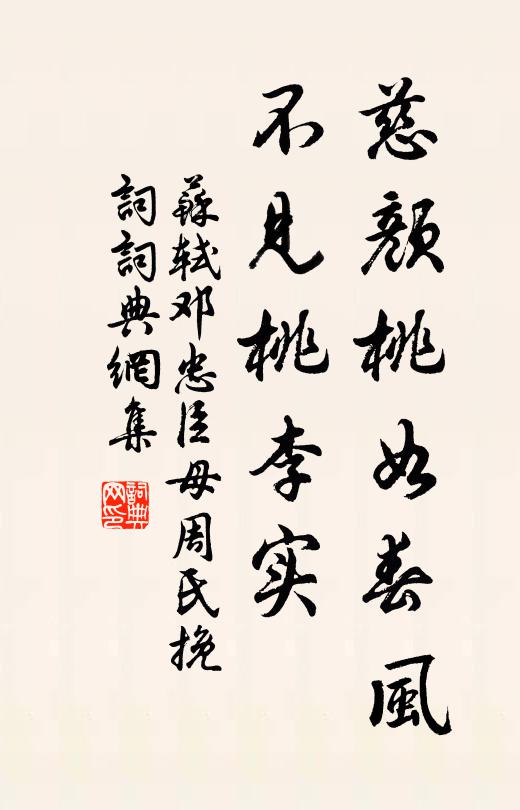 慈顔桃如春風
不見桃李实
蘇軾邓忠臣母周氏挽
詞詞典網集
詞典網印